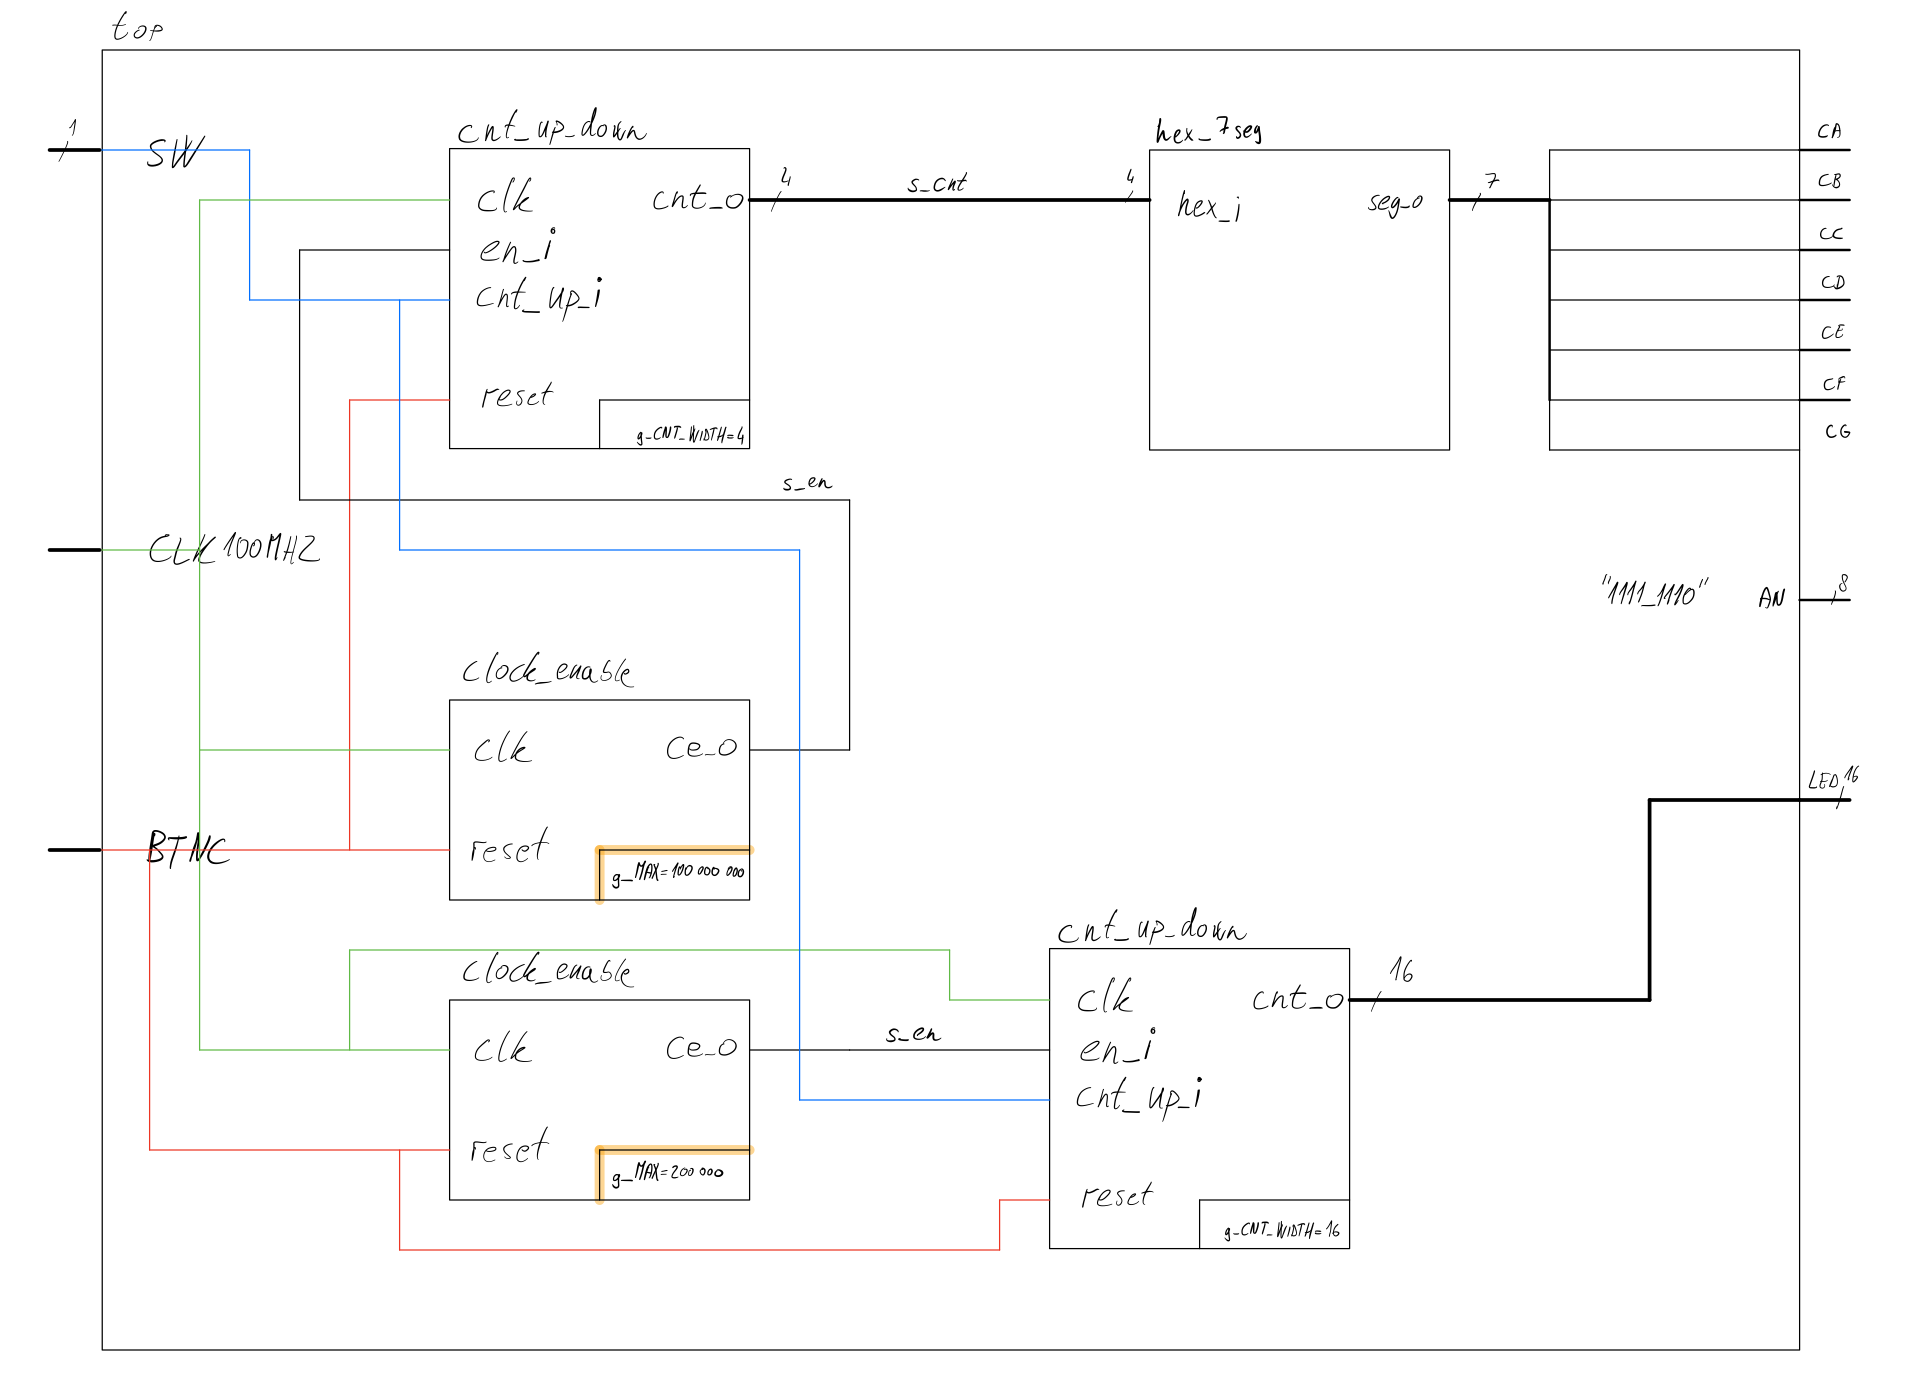 top
1
SW
cnt_up_down
clk
en_i
cnt_up_i
reset
cnt_o
g_CNT_WIDTH=4
4
s_cnt
4
hex_7seg
hex_i
seg_o
7
CA
CB
CC
CD
CE
CF
CG
s_en
CLK100MHZ
"1111_1110"
AN
8
clock_enable
clk
ce_o
reset
g_MAX=100 000 000
BTNC
LED
16
clock_enable
clk
ce_o
reset
g_MAX=200 000
s_en
cnt_up_down
clk
en_i
cnt_up_i
reset
cnt_o
g_CNT_WIDTH=16
16